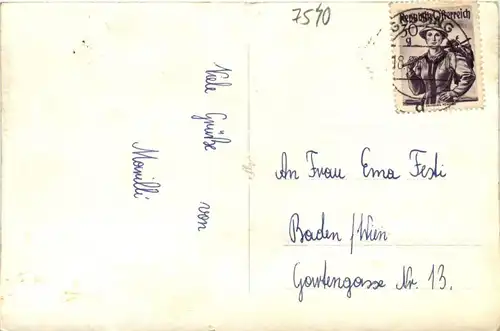 7540
Republik Österreich
30
g
18
Viele Grüße
von
Marilli
An Frau Erna Festi
Baden / Wien
Gartengasse Nr. 13.